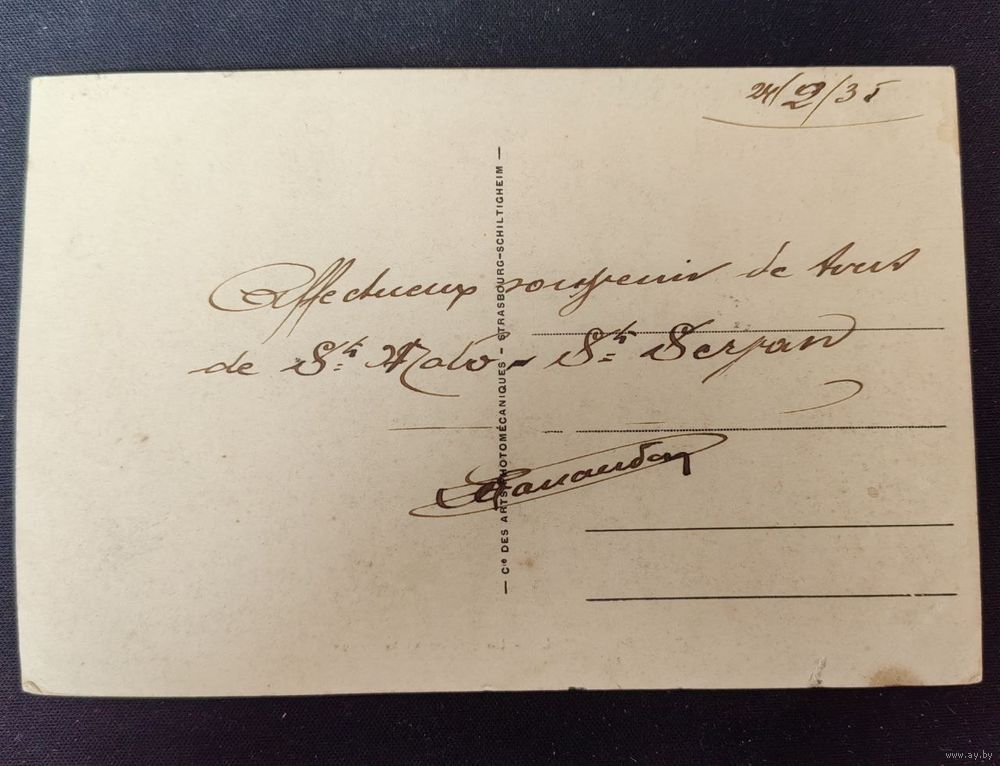 24/2/35
Affectueux souvenir de tous
de St. Malo - St. Servan
— Cie DES ARTS PHOTOMÉCANIQUES - STRASBOURG-SCHILTIGHEIM —
www.ay.by